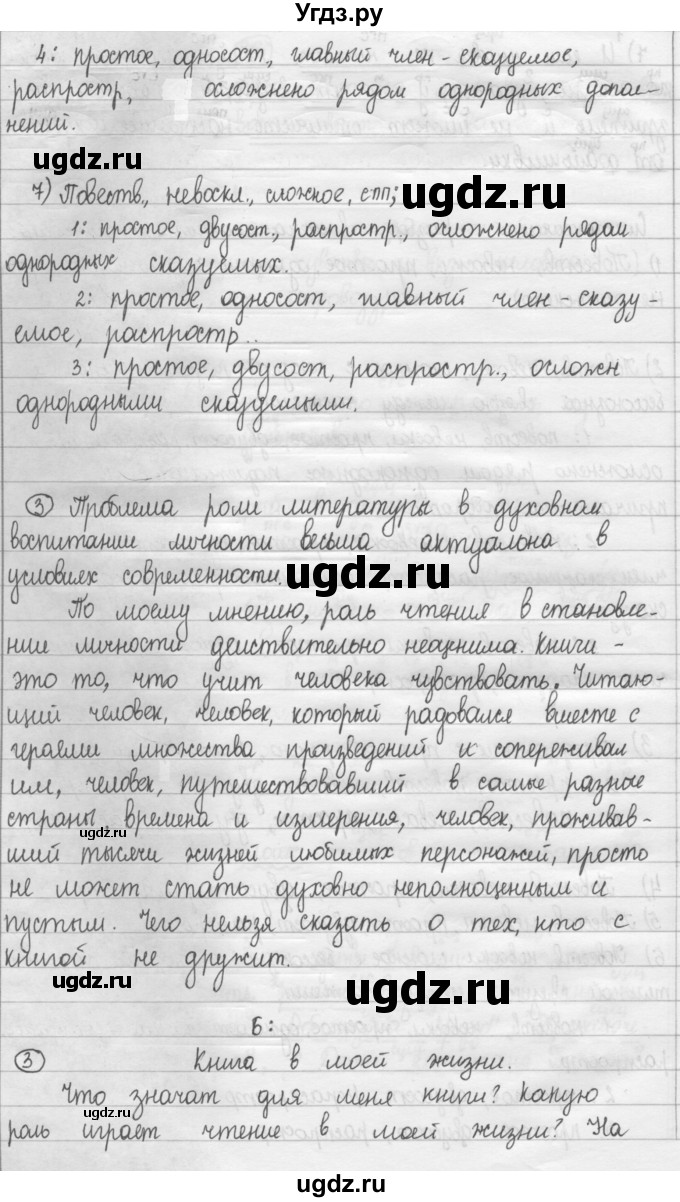 Угдз.ру
4: простое, односост, главный член - сказуемое,
распростр, осложнено рядом однородных допол-
нений.
ugdz.ru
7) Повеств., невоскл., сложное, спп;
ugdz.ru
1: простое, двусост., распростр., осложнено рядом
однородных сказуемых.
2: простое, односост, главный член - сказу-
емое, распростр..
3: простое, двусост, распростр., осложн
однородными сказуемыми.
3 Проблема роли литературы в духовном
воспитании личности весьма актуальна в
условиях современности.
ugdz.ru
По моему мнению, роль чтения в становле-
нии личности действительно неоценима. Книги -
это то, что учит человека чувствовать. Читаю-
щий человек, человек, который радовался вместе с
героями множества произведений и сопереживал
им, человек, путешествовавший в самые разные
страны времена и измерения, человек, проживав-
ugdz.ru
ший тысячи жизней любимых персонажей, просто
не может стать духовно неполноценным и
пустым. Чего нельзя сказать о тех, кто с
книгой не дружит.
ugdz.ru
ugdz.ru
Б:
3 Книга в моей жизни.
Что значат для меня книги? Какую
ugdz.ru
роль играет чтение в моей жизни? На
ugdz.ru